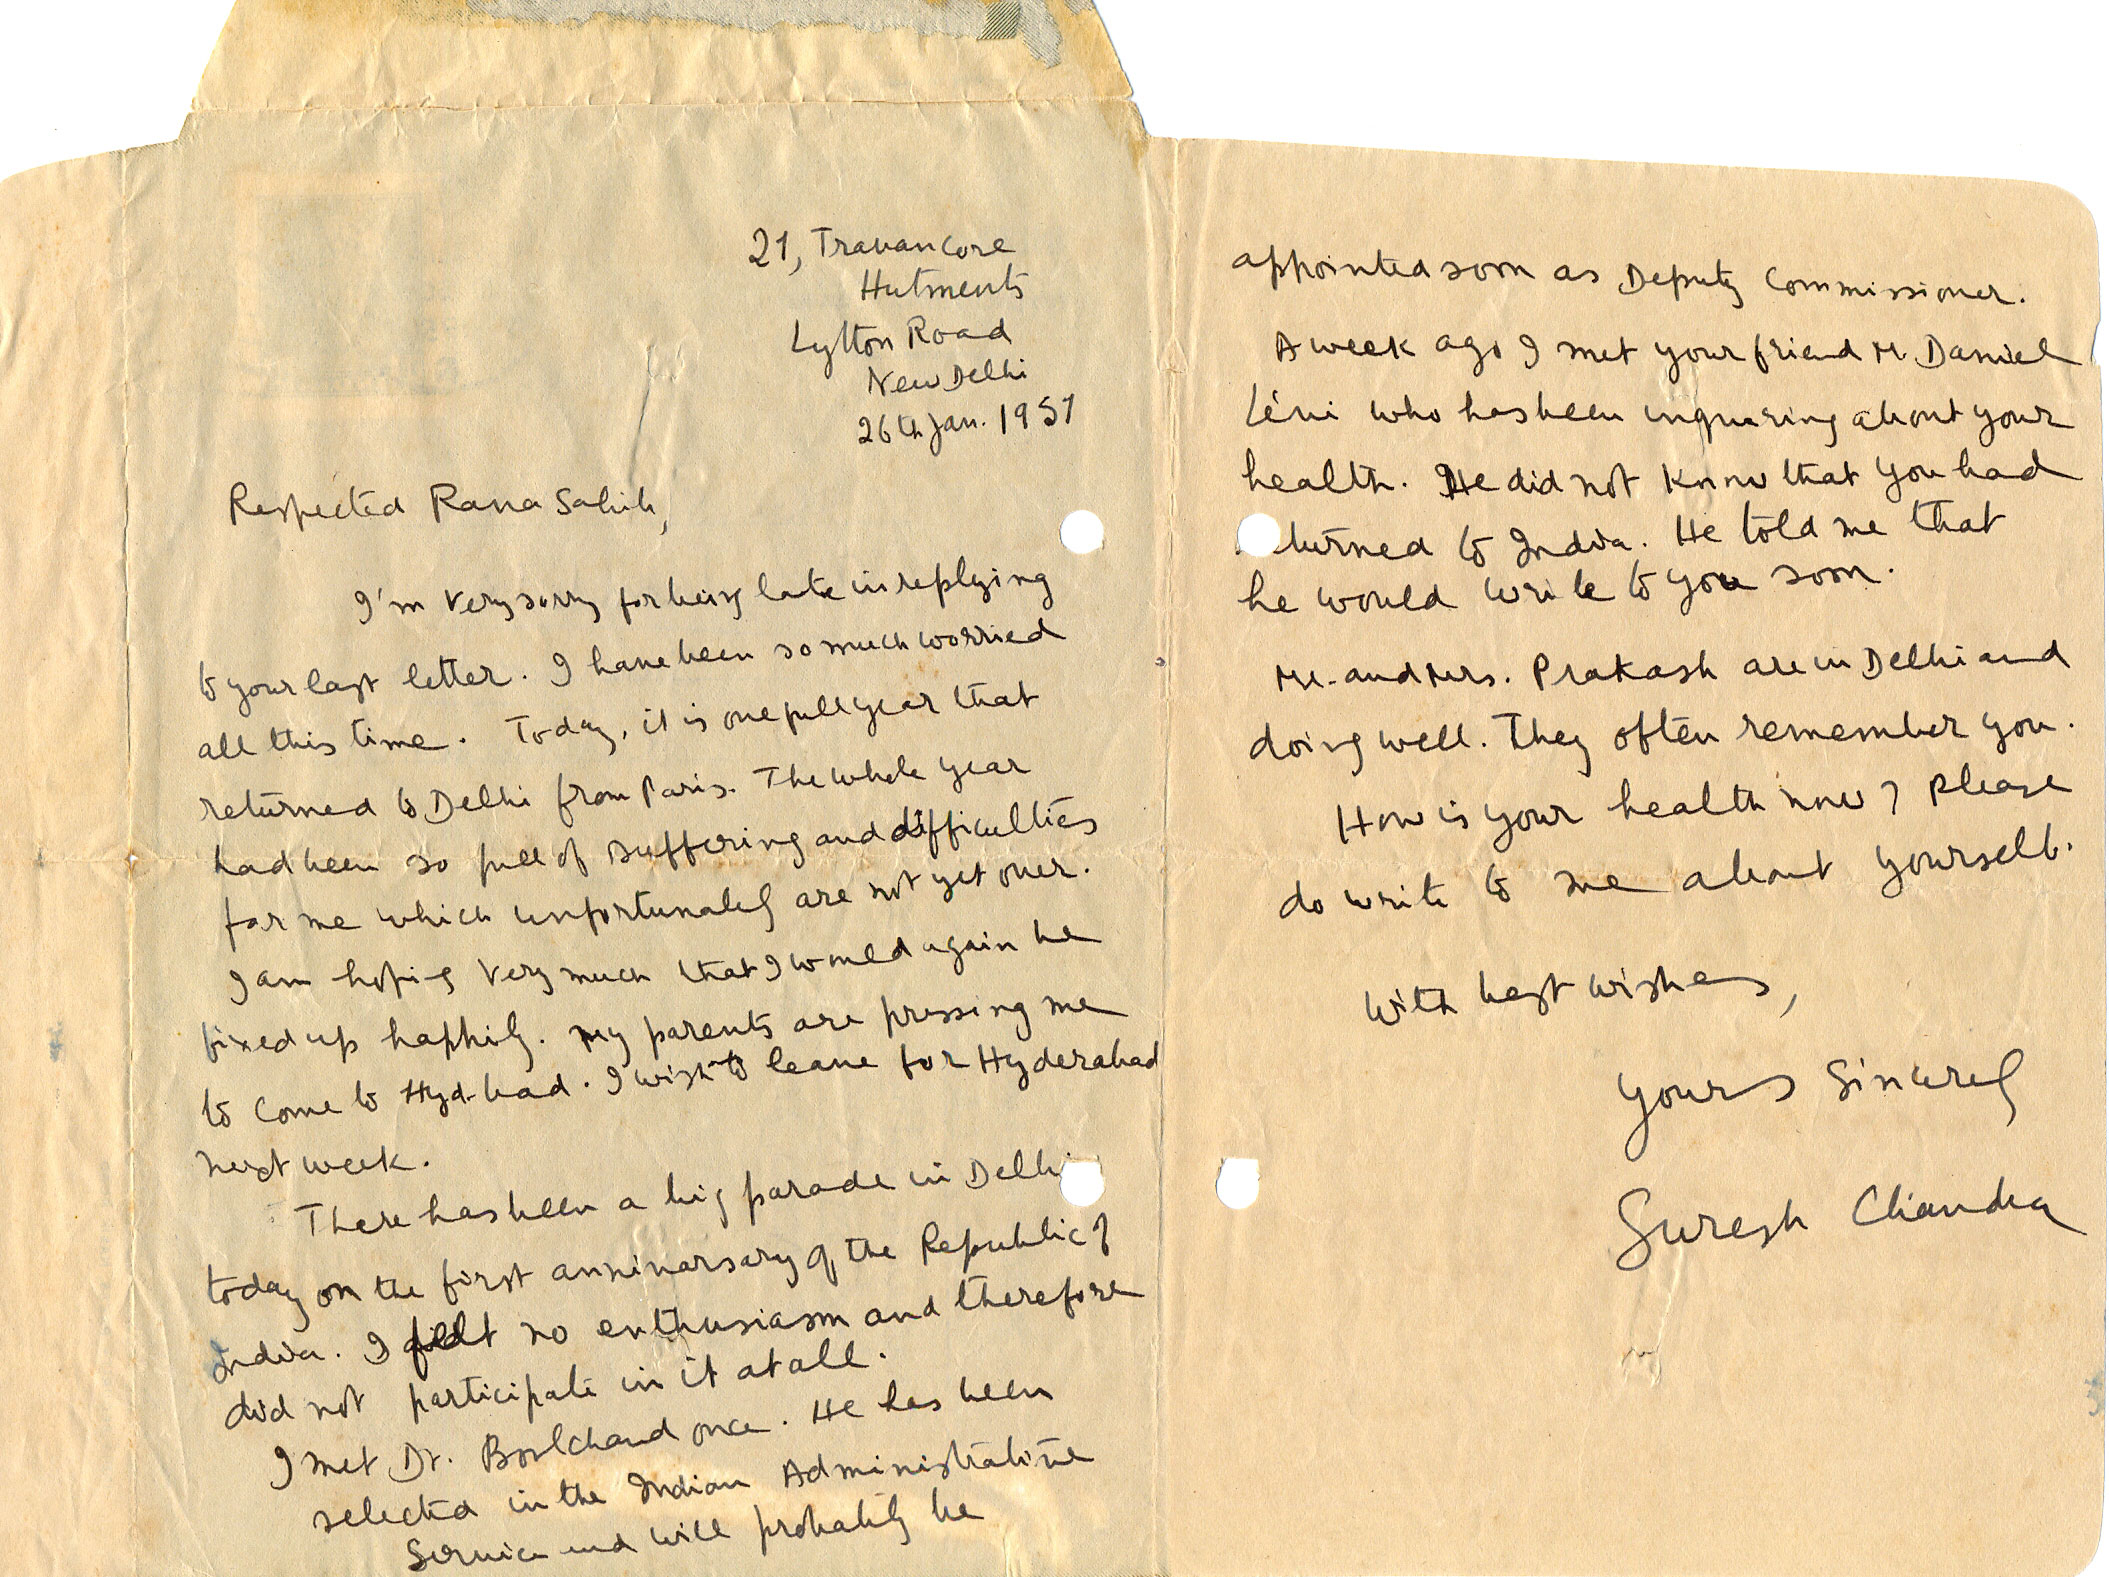 21, Travancore
Hutments
Lytton Road
New Delhi
26th Jan. 1951
Respected Rana Sahib,
I'm very sorry for being late in replying
to your last letter. I have been so much worried
all this time. Today, it is one full year that
returned to Delhi from Paris. The whole year
had been so full of suffering and difficulties
for me which unfortunately are not yet over.
I am hoping very much that I would again be
fixed up happily. My parents are pressing me
to come to Hyd-bad. I wish to leave for Hyderabad
next week.
There has been a big parade in Delhi
today on the first anniversary of the Republic of
India. I felt no enthusiasm and therefore
did not participate in it at all.
I met Dr. Boolchand once. He has been
selected in the Indian Administrative
Service and will probably be
appointed soon as Deputy Commissioner.
A week ago I met your friend M. Daniel
Lévi who has been inquiring about your
health. He did not know that you had
turned to India. He told me that
he would write to you soon.
Mr. and Mrs. Prakash are in Delhi and
doing well. They often remember you.
How is your health now? Please
do write to me about yourself.
With best wishes,
Yours Sincerely
Suresh Chandra